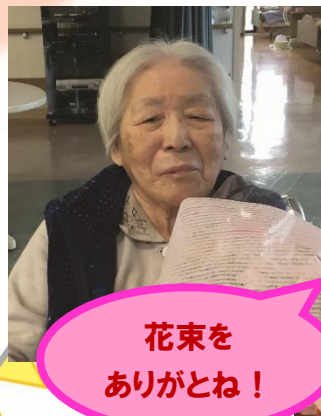 花束を
ありがとね！